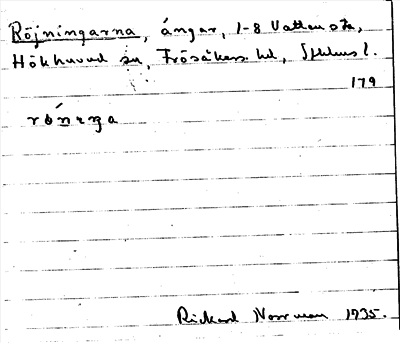 Röjningarna, ängar, 1-8 Vattensta,
Hökhuvud sn, Frösåkers hd, Sthlms l.
179
rǿnɪŋa
Rickard Norrman 1935.